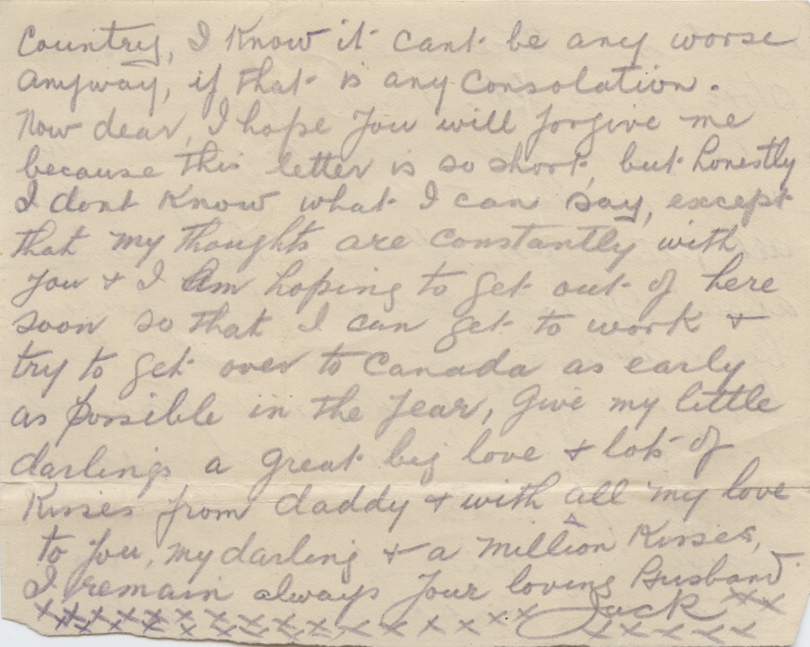 Country, I Know it cant be any worse
anyway, if that is any Consolation.
Now dear, I hope you will forgive me
because this letter is so short, but honestly
I dont Know what I can say, except
that my thoughts are constantly with
you + I am hoping to get out of here
soon so that I can get to work +
try to get over to Canada as early
as possible in the year, Give my little
darlings a great big love + lots of
Kisses from daddy + with all my love
to you, my darling + a million Kisses,
I remain always your loving Husband
Jack xx
xxxxxxxxxxxxxx
xxxxxxxxxxxxxxxxx